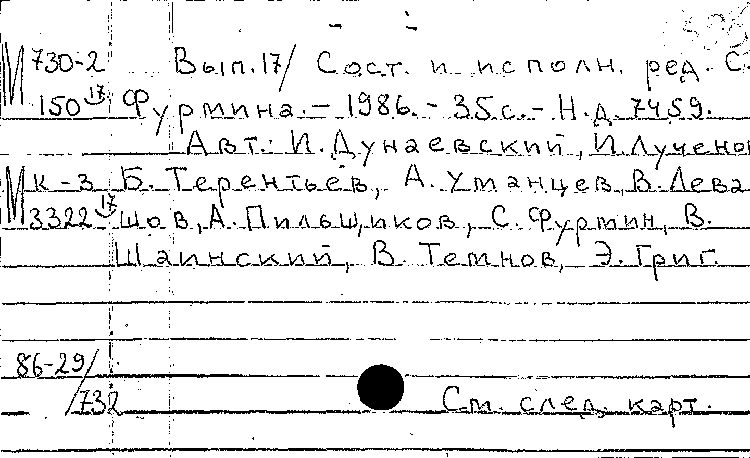 М 730-2 Вып.17/ Сост. и исполн. ред. С.
150 17 Фурмина. – 1986. – 35с. – Н.д. 7459.
Авт.: И. Дунаевский, И. Лученок
М к-3 Б. Терентьев, А. Уманцев, В. Лева
3322 17 шов, А. Пильщиков, С. Фурмин, В.
Шаинский, В. Темнов, Э. Григ.
86-29/
732 См. след. карт.